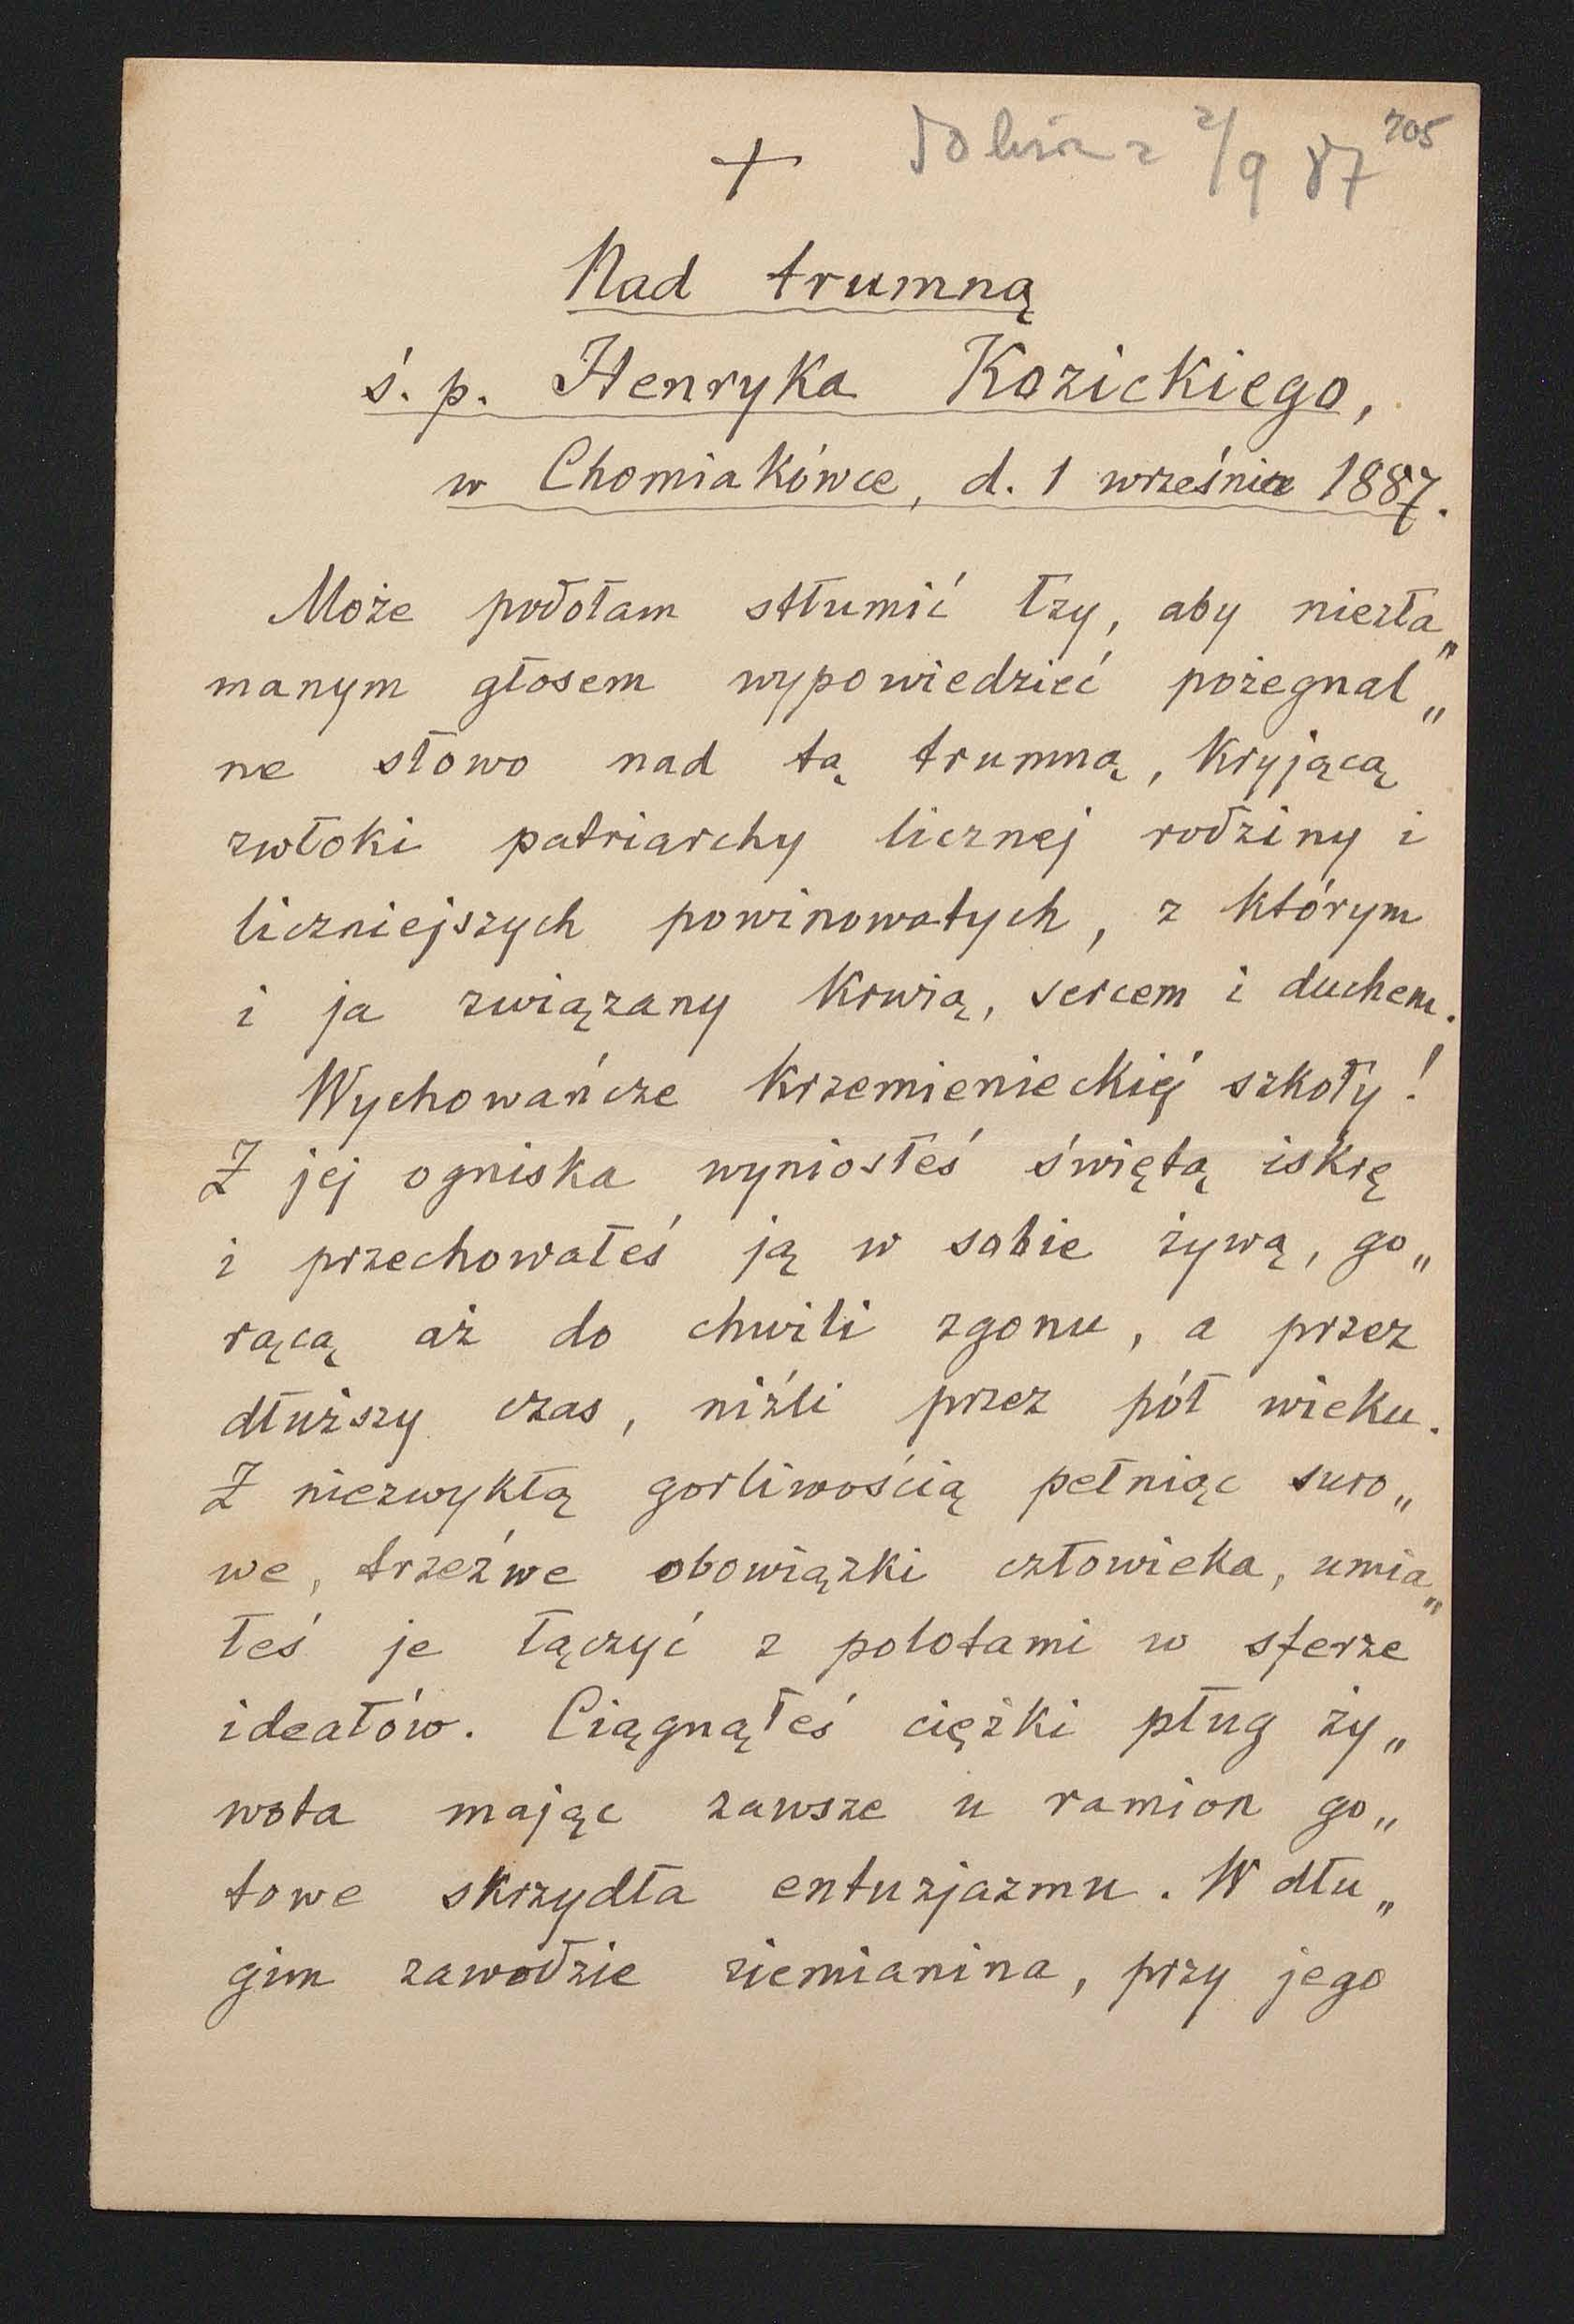 + 2/9 87 705
Nad trumną
ś. p. Henryka Kozickiego,
w Chomiakówce, d. 1 września 1887.
Może podołam stłumić łzy, aby niezła„
manym głosem wypowiedzieć pożegnal„
ne słowo nad tą trumną, kryjącą
zwłoki patriarchy licznej rodziny i
liczniejszych powinowatych, z którym
i ja związany krwią, sercem i duchem.
Wychowańcze krzemienieckiéj szkoły!
Z jej ogniska wyniosłeś świętą iskrę
i przechowałeś ją w sobie żywą, go„
rącą aż do chwili zgonu, a przez
dłuższy czas, niźli przez pół wieku.
Z niezwykłą gorliwością pełniąc suro„
we, trzeźwe obowiązki człowieka, umia„
łeś je łączyć z polotami w sferze
ideałów. Ciągnąłeś ciężki pług ży„
wota mając zawsze u ramion go„
towe skrzydła entuzjazmu. W dłu„
gim zawodzie ziemianina, przy jego